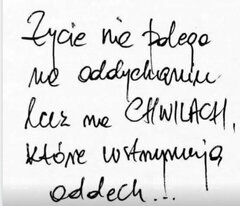 Życie nie polega
na oddychaniu
lecz na CHWILACH,
które wstrzymują
oddech...